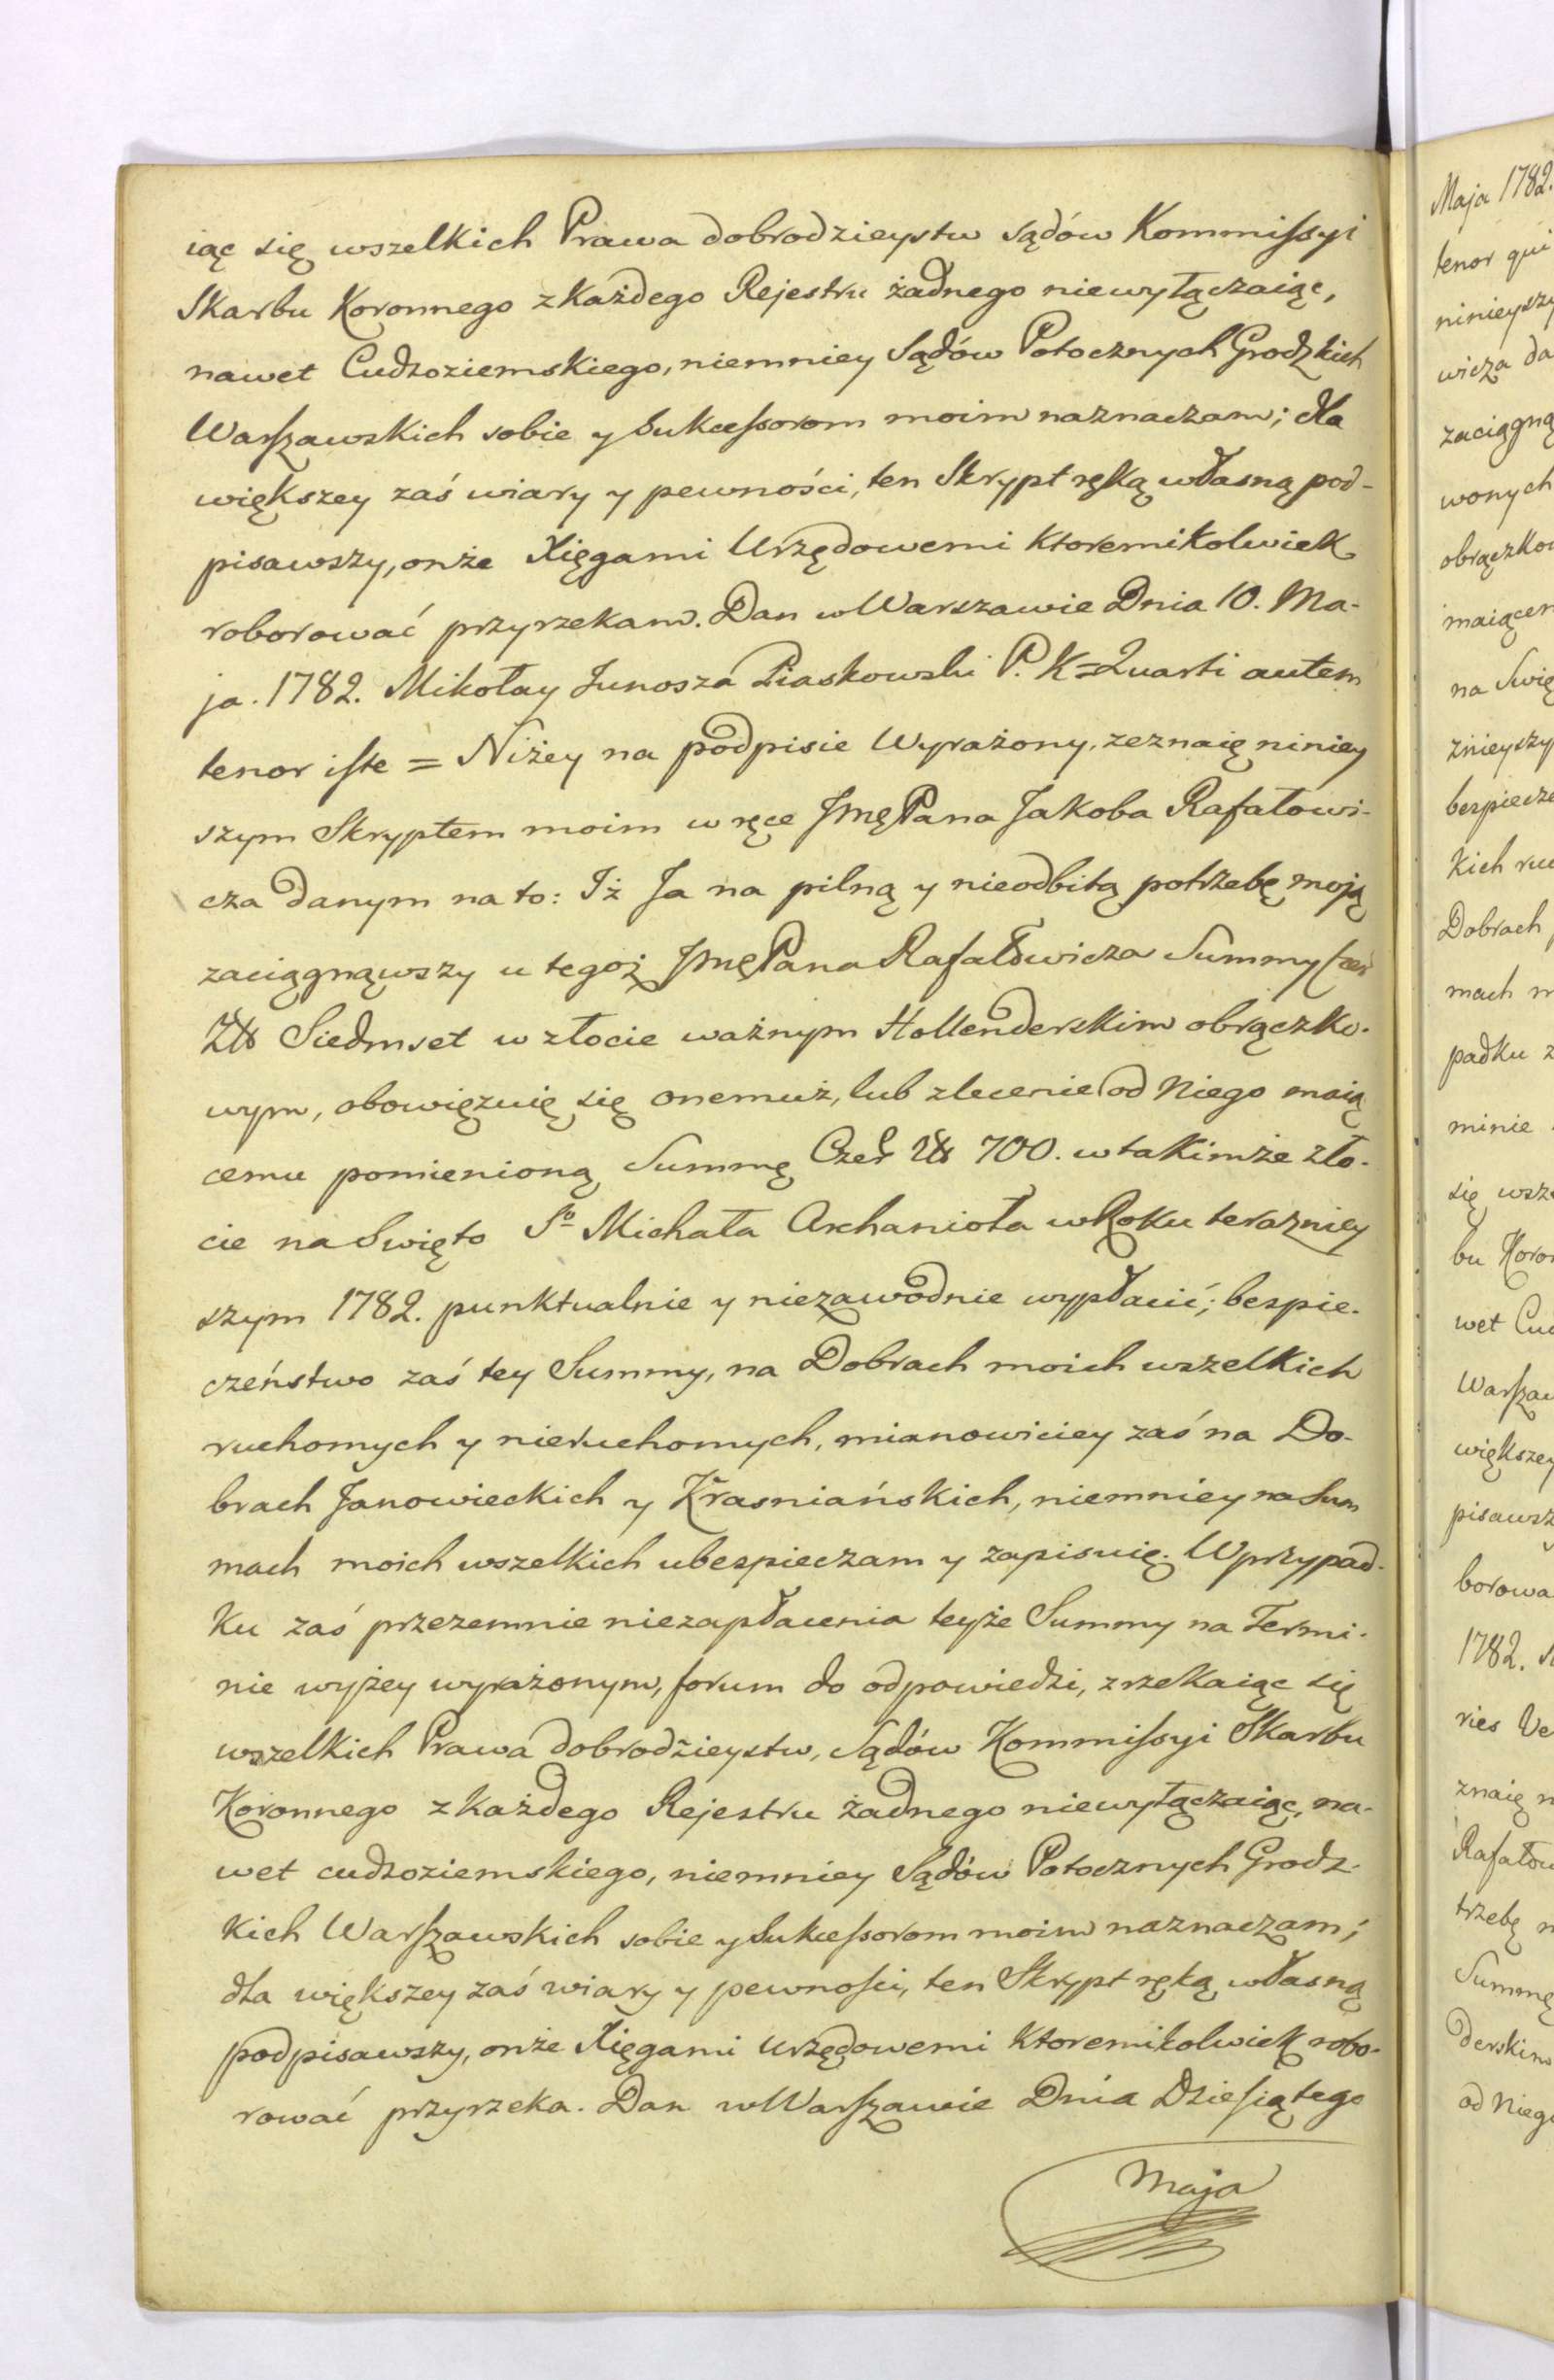 iąc się wszelkich Prawa dobrodzieystw sądów Kommissyi
Skarbu Koronnego z każdego Rejestru żadnego niewyłączaiąc,
nawet Cudzoziemskiego, niemniey Sądów Potocznych Grodzkich
Warszawskich sobie y Sukcessorom moim naznaczam; dla
większey zaś wiary y pewności, ten Skrypt ręką własną pod-
pisawszy, onże Xięgami Urzędowemi ktoremikolwiek
roborować przyrzekam. Dan w Warszawie Dnia 10. Ma-
ja. 1782. Mikołay Junosza Piaskowski P. K = Quarti autem
tenor iste = Niżey na podpisie Wyrażony, zeznaię niniey
szym Skryptem moim w ręce JmęPana Jakoba Rafałowi-
cza danym na to: Iż Ja na pilną y nieodbitą potrzebę moją
zaciągnąwszy u tegoż JmęPana Rafałowicza Summy
Siedmset w złocie ważnym Hollenderskim obrączko-
wym, obowięzuię się onemuż, lub zlecenie od Niego maią
cemu pomienioną Summę Czer 700. w takimże zło-
cie na Swięto So Michała Archanioła w Roku terazniey
szym 1782. punktualnie y niezawodnie wypłacić; bespie-
czeństwo zaś tey Summy, na Dobrach moich wszelkich
ruchomych y nieruchomych, mianowiciey zaś na Do-
brach Janowieckich y Krasniańskich, niemniey na Sum
mach moich wszelkich ubespieczam y zapisuię. W przypad-
ku zaś przezemnie niezapłacenia teyże Summy na Termi-
nie wyżey wyrażonym, forum do odpowiedzi, zrzekaiąc się
wszelkich Prawa dobrodzieystw, Sądów Kommissyi Skarbu
Koronnego z każdego Rejestru żadnego niewyłączaiąc, na-
wet cudzoziemskiego, niemniey Sądów Potocznych Grodz-
kich Warszawskich sobie y Sukcessorom moim naznaczam;
dla większey zaś wiary y pewności, ten Skrypt ręką własną
podpisawszy, onże Xięgami urzędowemi ktoremikolwiek robo-
rować przyrzeka. Dan w Warszawie Dnia Dziesiątego
Maja
Maja 1782.
tenor qui
ninieyszy
wicza da
zaciągną
wonych
obrączkow
maiącem
na Swię
znieyszy
bespiecze
kich ruc
Dobrach
mach m
padku z
minie
się wsze
bu Koron
wet Cud
Warszaw
większey
pisawsz
borowa
1782.
ries Ve
znaię n
Rafałow
trzebę m
Summę
derskim
od Niego